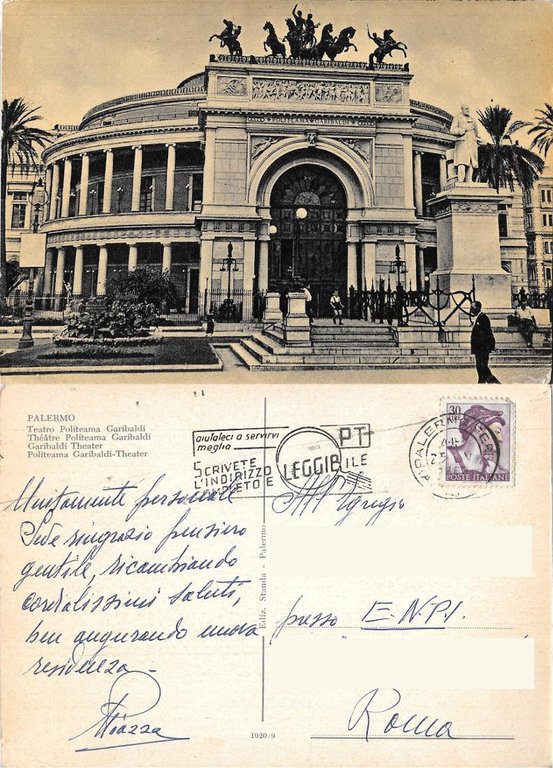 POLITEAMA GARIBALDI
PALERMO
Teatro Politeama Garibaldi
Théâtre Politeama Garibaldi
Garibaldi Theater
Politeama Garibaldi-Theater
aiutateci a servirvi
meglio
PT
SCRIVETE
L'INDIRIZZO
COMPLETO E
LEGGIBILE
PALERMO
30
POSTE ITALIANE
Unitamente personale
Sede ringrazio pensiero
gentile, ricambiando
cordialissimi saluti,
ben augurando nuova
residenza -
Piazza
Ediz. Standa - Palermo
All'Egregio
presso E.N.P.I.
Roma
1920/9